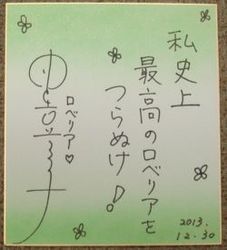 私史上
最高のロベリアを
つらぬけ!
ロベリア♡
2013.
12.30